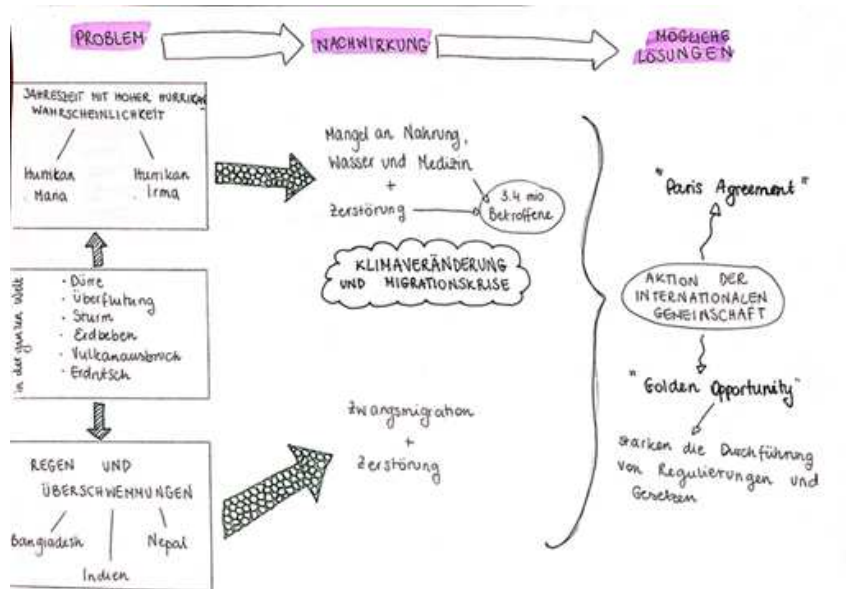 PROBLEM
NACHWIRKUNG
MÖGLICHE
LÖSUNGEN
JAHRESZEIT MIT HOHER HURRIKAN
WAHRSCHEINLICHKEIT
Hurrikan
Maria
Hurrikan
Irma
in der ganzen Welt
· Dürre
· Überflutung
· Sturm
· Erdbeben
· Vulkanausbruch
· Erdrutsch
REGEN UND
ÜBERSCHWEMMUNGEN
Bangladesh
Indien
Nepal
Mangel an Nahrung,
Wasser und Medizin
+
Zerstörung
3.4 mio
Betroffene
KLIMAVERÄNDERUNG
UND MIGRATIONSKRISE
Zwangsmigration
+
Zerstörung
"Paris Agreement"
AKTION DER
INTERNATIONALEN
GEMEINSCHAFT
"Golden Opportunity"
starken die Durchführung
von Regulierungen und
Gesetzen